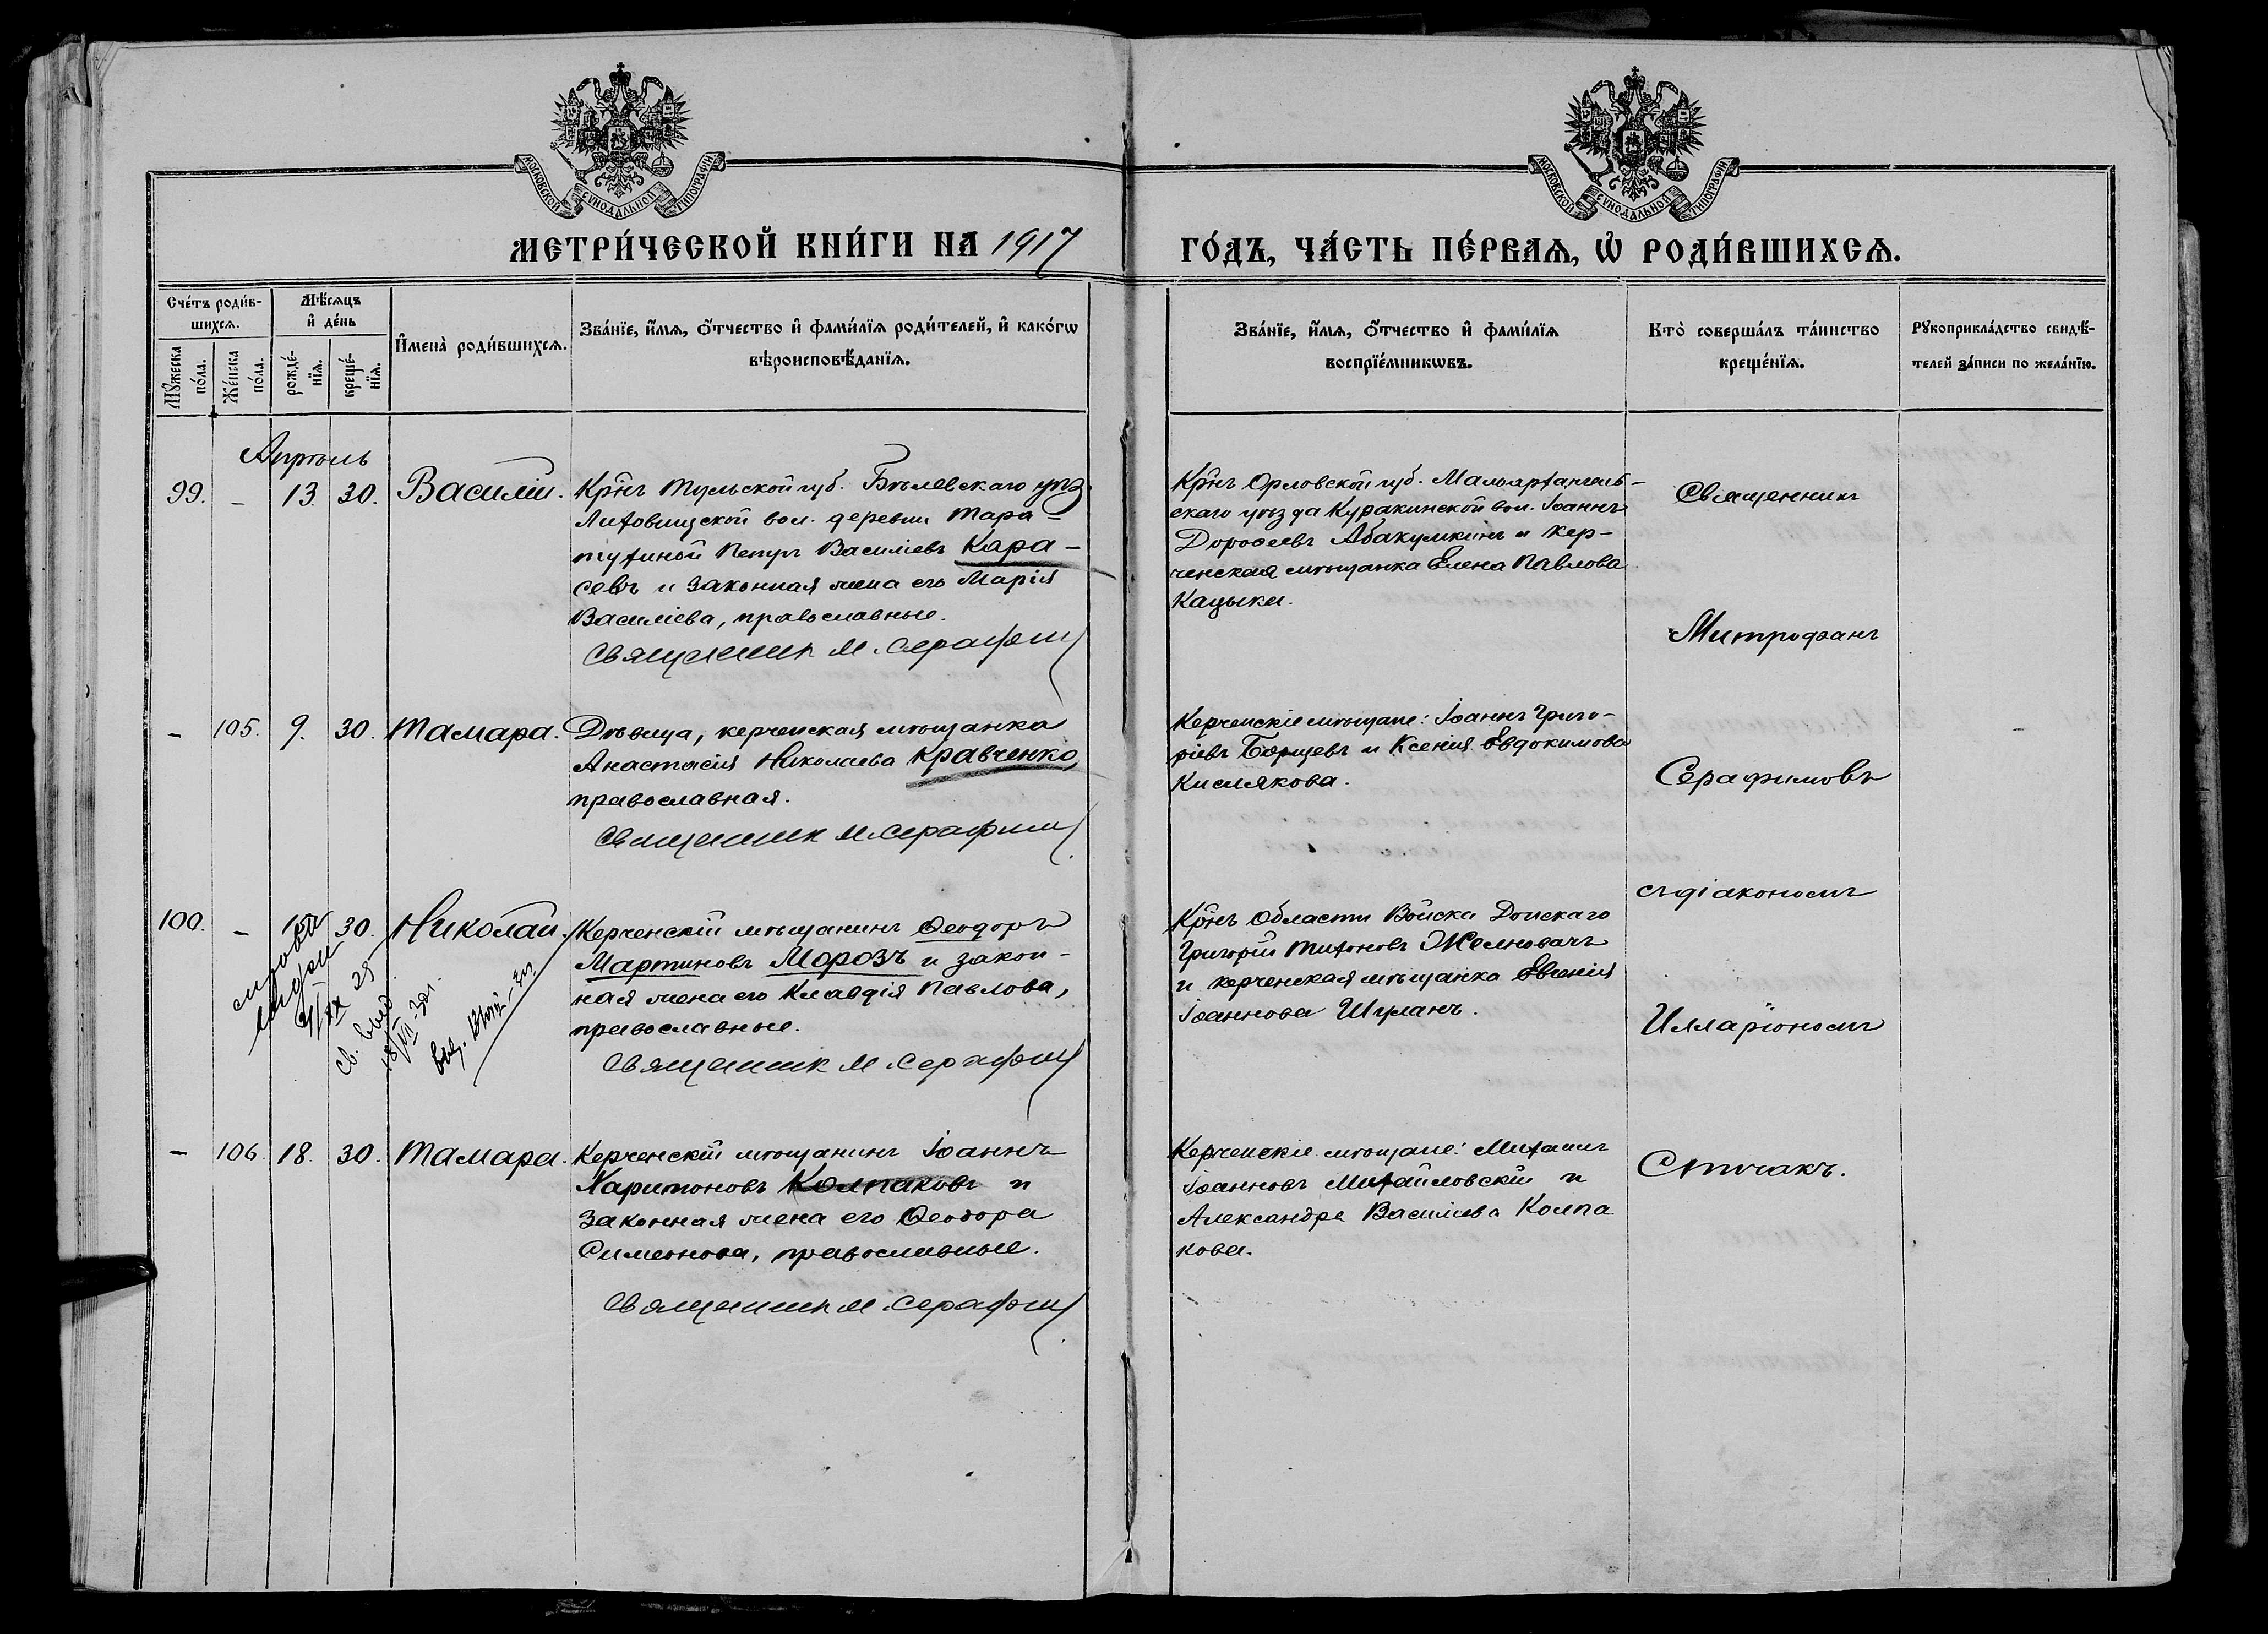 МОСКОВСКОЙ СѴНОДАЛЬНОЙ ТИПОГРАФІИ
МОСКОВСКОЙ СѴНОДАЛЬНОЙ ТИПОГРАФІИ
МЕТРИ́ЧЕСКОЙ КНИ́ГИ НА 1917
ГО́ДЪ, ЧА́СТЬ ПЕ́РВАѦ, Ѽ РОДИ́ВШИХСѦ.
Сче́тъ роди́в-
шихсѧ.
Мꙋ́жеска
по́ла.
Же́нска
по́ла.
Мѣ́сѧцъ
и҆ де́нь
рожде́-
нїѧ.
креще́-
нїѧ.
И҆мена̀ роди́вшихсѧ.
Зва́нїе, и҆́мѧ, ѻ҆́тчество и҆ фами́лїѧ роди́телей, и҆ како́гѡ
вѣроисповѣ́данїѧ.
Зва́нїе, и҆́мѧ, ѻ҆́тчество и҆ фами́лїѧ
воспрїе́мникѡвъ.
Кто̀ соверша́лъ та́инство
креще́нїѧ.
Рꙋкоприкла́дство свидѣ́-
телей за́писи по жела́нїю.
Апрѣль
99. – 13 30. Василій.
Крнъ Тульской губ. Бѣлевскаго уѣз.
Литовищской вол. деревни Тара-
тухиной Петръ Василіевъ Кара-
севъ и законная жена его Марія
Василіева, православные.
Священник М. Серафим
Крнъ Орловской губ. Малоархангель-
скаго уѣзда Куракинской вол. Іоаннъ
Дорофеевъ Абакумкинъ и Кер-
ченская мѣщанка Елена Павлова
Кацыки.
Священникъ
Митрофанъ
– 105. 9. 30. Тамара.
Дѣвица, керченская мѣщанка
Анастасія Николаева Кравченко,
православная.
Священник М. Серафим
Керченскіе мѣщане: Іоаннъ Григо-
ріевъ Борщевъ и Ксенія Евдокимова
Кислякова.
Серафимовъ
съ діакономъ
100. – 30. Николай.
Керченскій мѣщанинъ Ѳеодоръ
Мартиновъ Морозъ и закон-
ная жена его Клавдія Павлова,
православные.
Священник М. Серафим
Крнъ Области Войска Донскаго
Григорій Тихоновъ Желновачъ
и керченская мѣщанка Евгенія
Іоаннова Шуманъ.
Илларіономъ
– 106. 18. 30. Тамара.
Керченскій мѣщанинъ Іоаннъ
Харитоновъ Колпаковъ и
законная жена его Ѳеодора
Симеонова, православные.
Священник М. Серафим
Керченскіе мѣщане: Михаилъ
Іоанновъ Михайловскій и
Александра Василіева Колпа
кова.
Спичакъ.